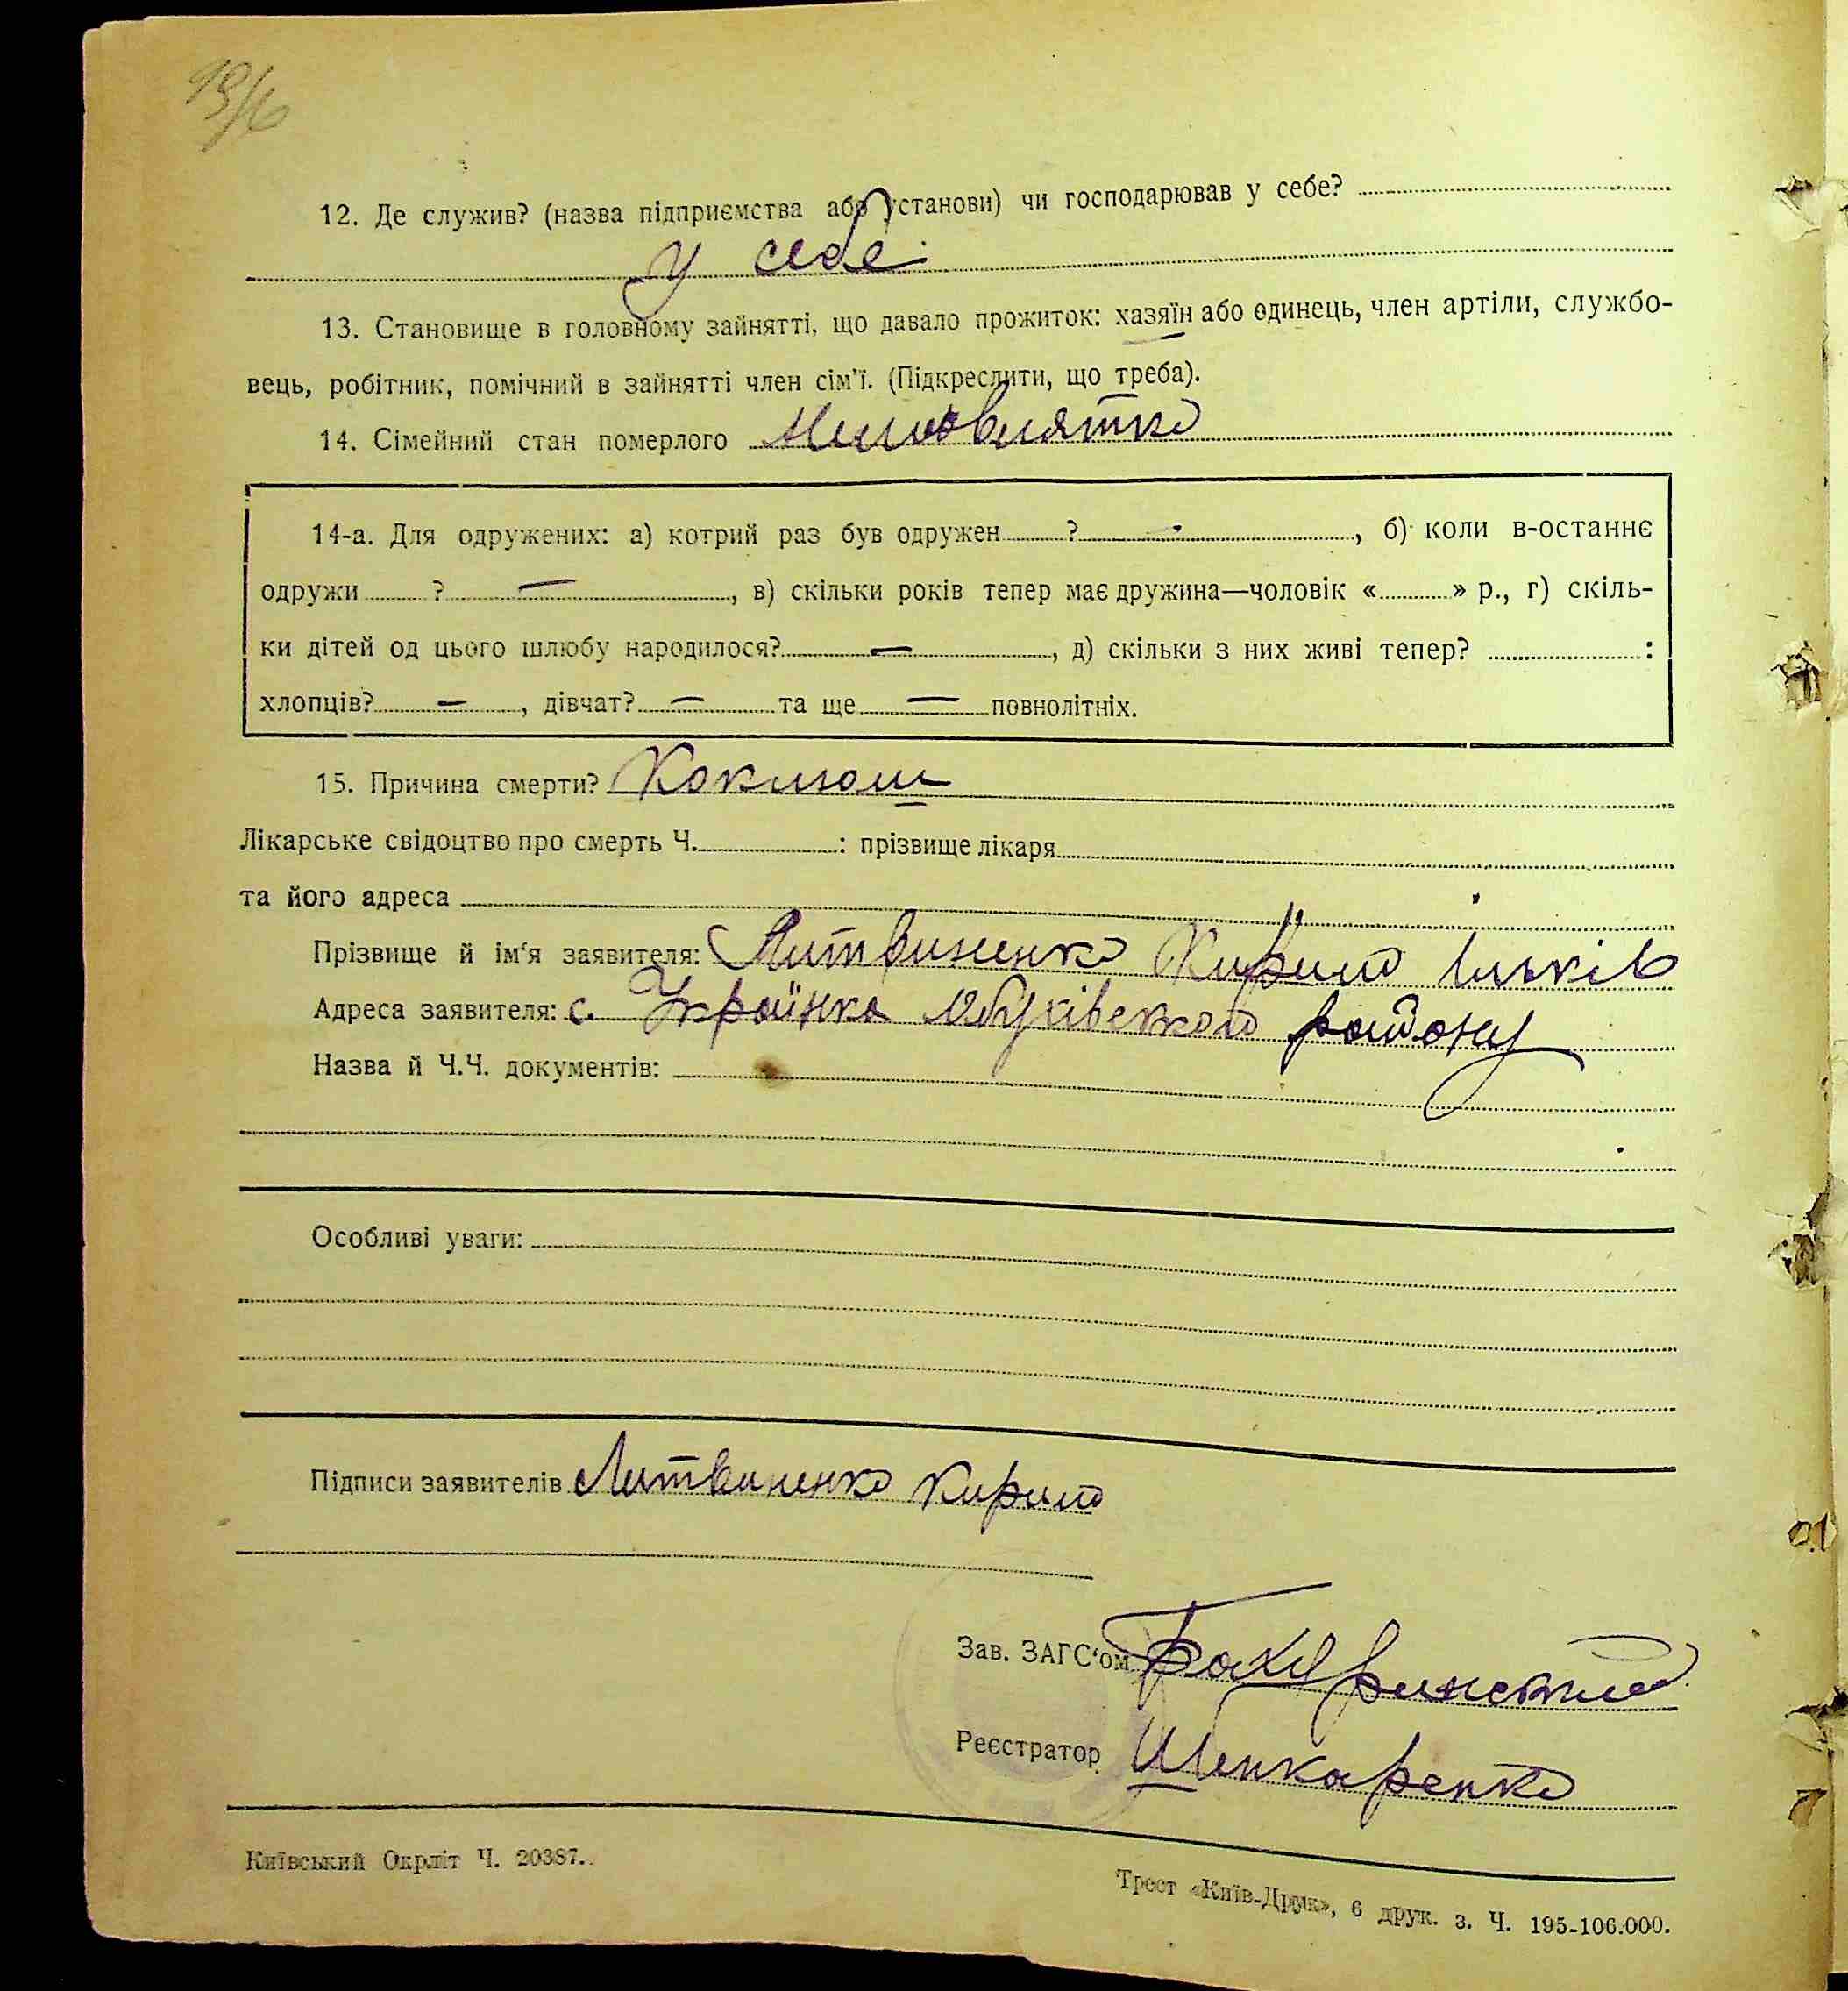 12. Де служив? (назва підприємства або установи) чи господарював у себе?
у себе
13. Становище в головному зайнятті, що давало прожиток: хазяїн або одинець, член артіли, службо-
вець, робітник, помічний в зайнятті член сім'ї. (Підкреслити, що треба).
14. Сімейний стан померлого Немовлятко
14-а. Для одружених: а) котрий раз був одружен ? —, б) коли в-останнє
одружи ? —, в) скільки років тепер має дружина—чоловік « » р., г) скіль-
ки дітей од цього шлюбу народилося? —, д) скільки з них живі тепер? :
хлопців? —, дівчат? — та ще — повнолітніх.
15. Причина смерти? Коклюш
Лікарське свідоцтво про смерть Ч. : прізвище лікаря
та його адреса
Прізвище й ім'я заявителя: Литвиненко Кирило Ільків
Адреса заявителя: с. Українка Обухівського району
Назва й Ч.Ч. документів:
Особливі уваги:
Підписи заявителів Литвиненко Кирило
Зав. ЗАГС'ом
Реєстратор
Київський Окрліт Ч. 20387.
Трест «Київ-Друк», 6 друк. з. Ч. 195-106.000.